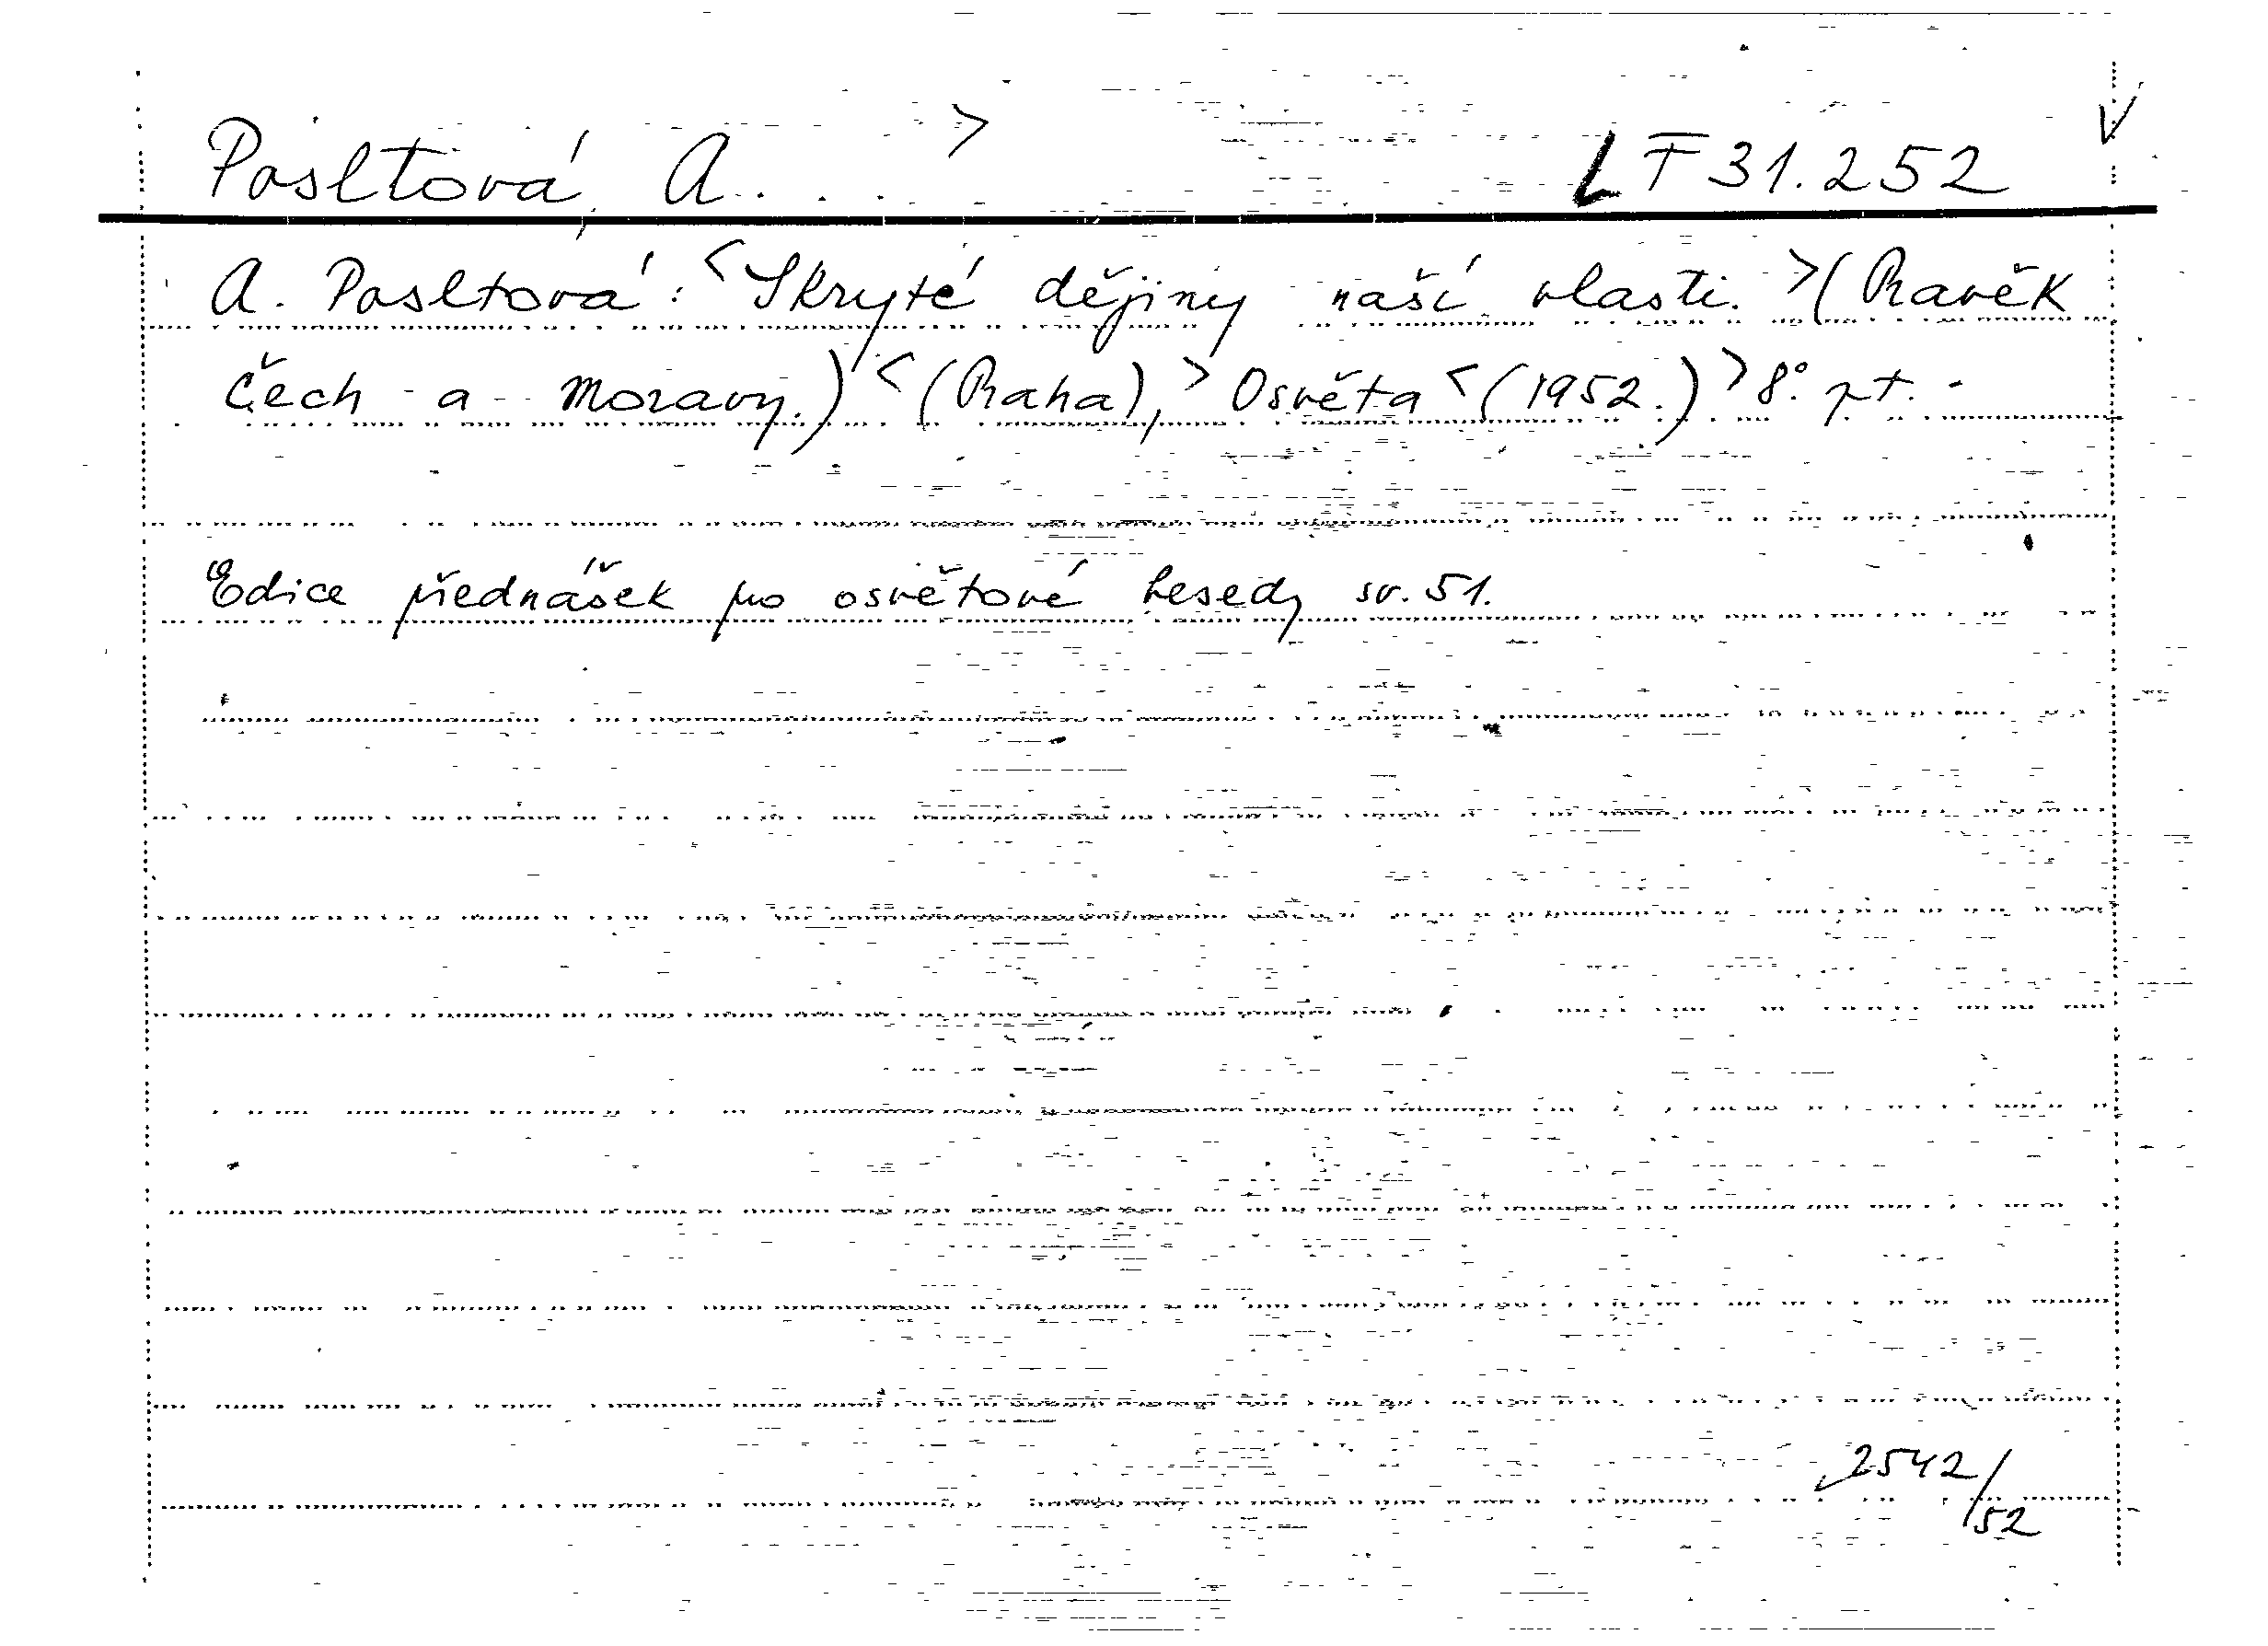 Posltová, A... > LF 31.252 V
A. Posltová: <Skryté dějiny naší vlasti.> (Pravěk
Čech a Moravy.) <(Praha),> Osvěta <(1952.)> 8°. pt. -
Edice přednášek pro osvětové besedy sv. 51.
2542/52